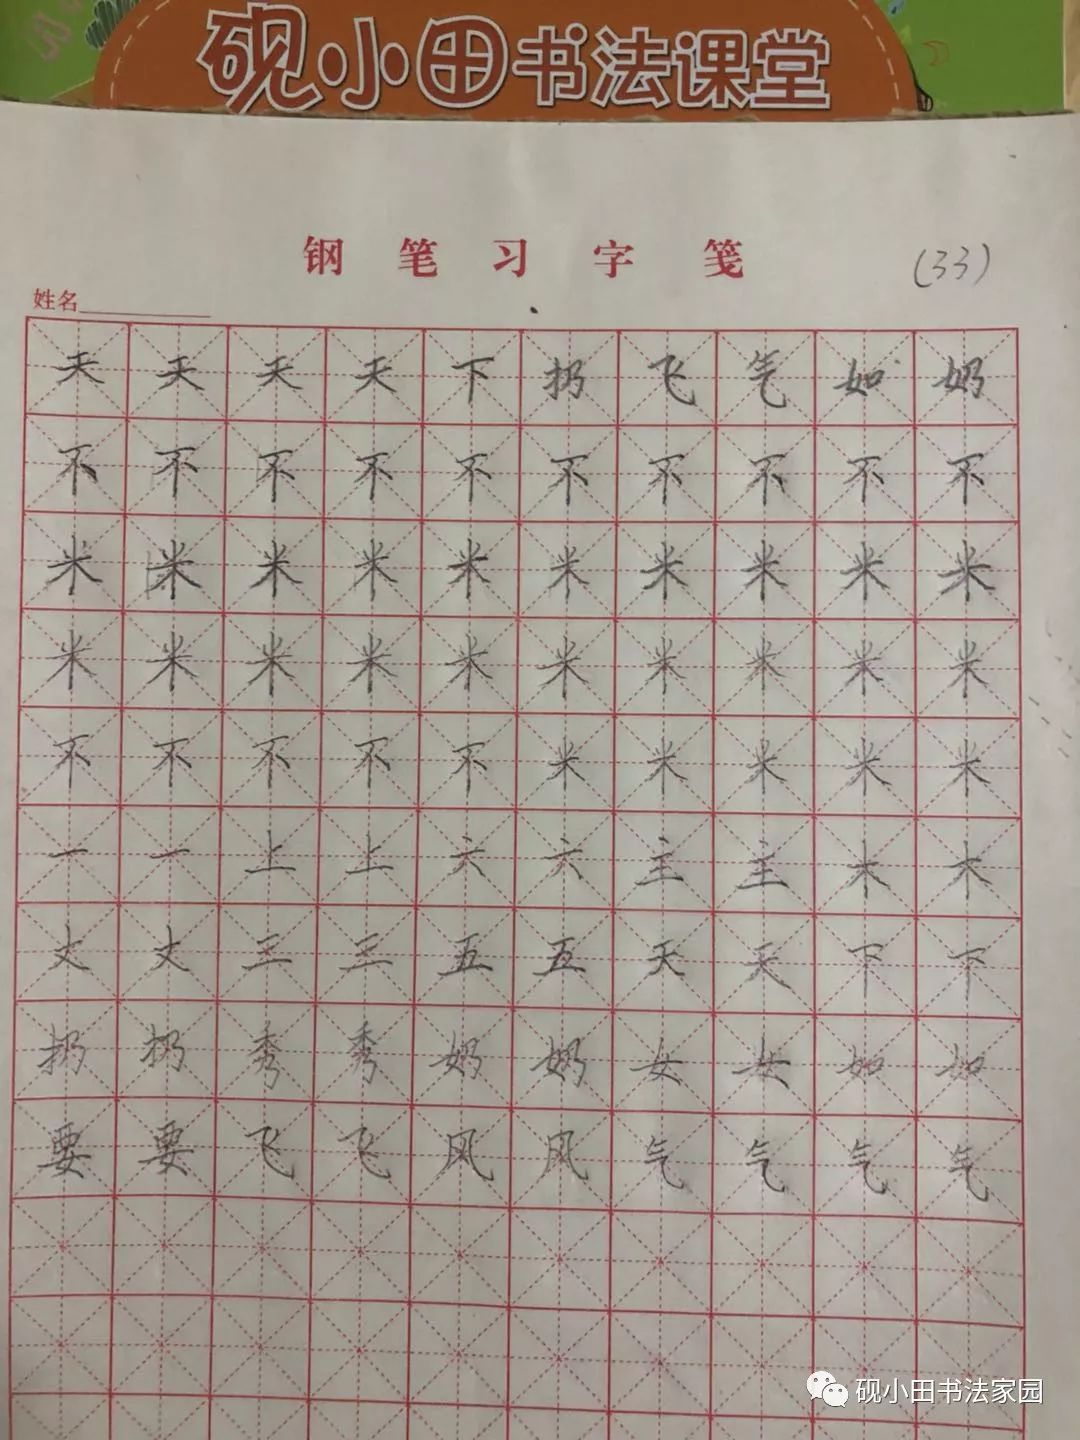 砚小田书法课堂
钢笔习字笺
(33)
姓名
天天天天下扔飞气如奶
不不不不不不不不不不
米米米米米米米米米米
米米米米米米米米米米
不不不不不米米米米米
一一上上六六主主木木
丈丈三三五五天天下下
扔扔秀秀奶奶女女如如
要要飞飞风风气气气气
砚小田书法家园